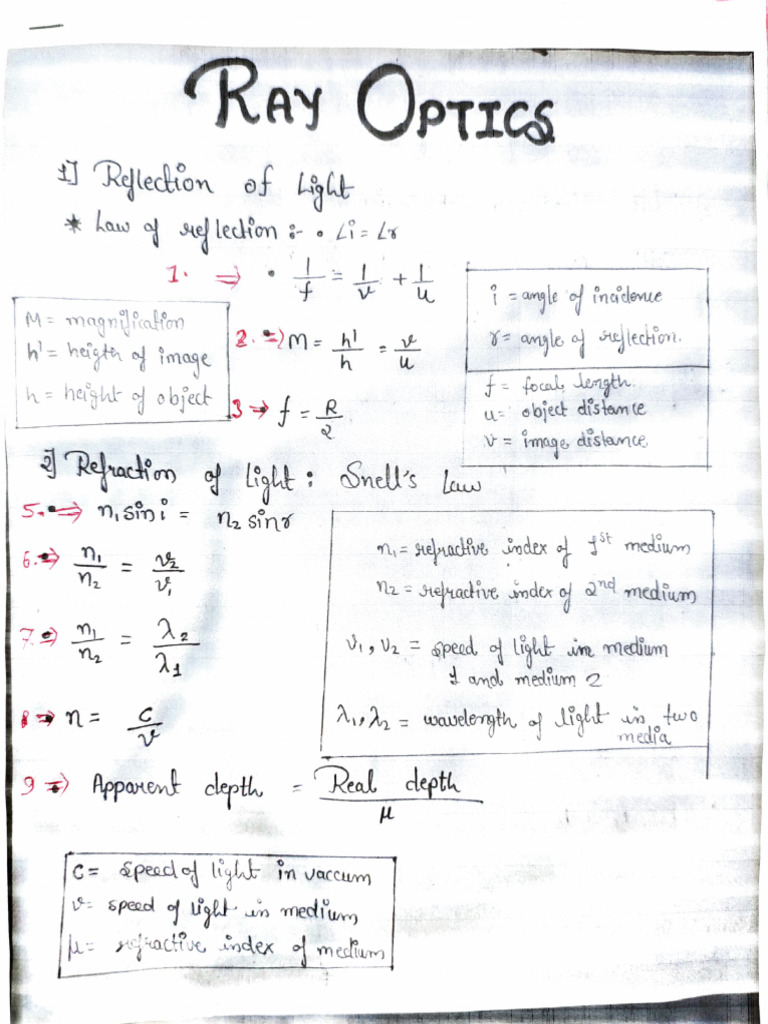 RAY OPTICS
1] Reflection of Light
* Law of reflection :- • ∠i = ∠r
1. ⇒ • 1/f = 1/v + 1/u
i = angle of incidence
r = angle of reflection.
M = magnification
h' = heigth of image
h = height of object
2. ⇒ M = h'/h = v/u
3 ⇒ f = R/2
f = focal length.
u = object distance
v = image distance
2] Refraction of Light : Snell's Law
5. ⇒ n₁ sin i = n₂ sin r
6. ⇒ n₁/n₂ = v₂/v₁
7. ⇒ n₁/n₂ = λ₂/λ₁
8 ⇒ n = c/v
n₁ = refractive index of 1st medium
n₂ = refractive index of 2nd medium
v₁, v₂ = speed of light in medium
1 and medium 2
λ₁, λ₂ = wavelength of light in two
media
9 ⇒ Apparent depth = Real depth/μ
C = speed of light in vaccum
v = speed of light in medium
μ = refractive index of medium